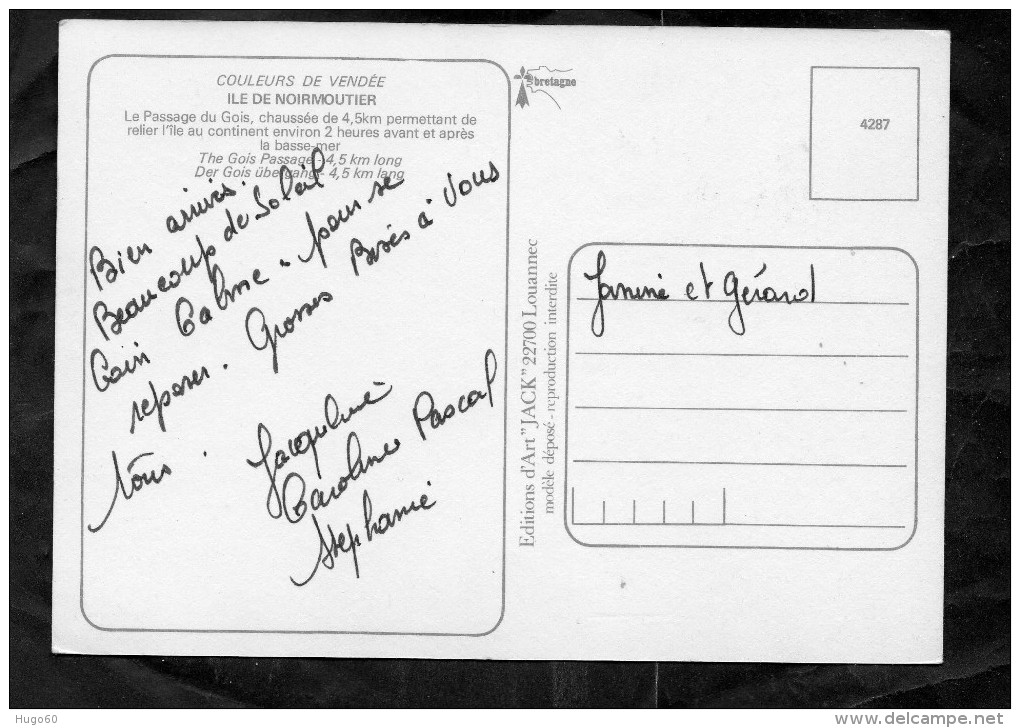 COULEURS DE VENDÉE
ILE DE NOIRMOUTIER
Le Passage du Gois, chaussée de 4,5km permettant de
relier l'île au continent environ 2 heures avant et après
la basse-mer
The Gois Passage - 4,5 km long
Der Gois übergang - 4,5 km lang
Bien arrivés.
Beaucoup de Soleil
Coin Calme - pour se
reposer. Grosses Bises à Vous
Tous.
Jacqueline
Caroline Pascal
Stephanie
bretagne
4287
Editions d'Art "JACK" 22700 Louannec
modèle déposé - reproduction interdite
Janine et Gérard
Hugo60
www.delcampe.net